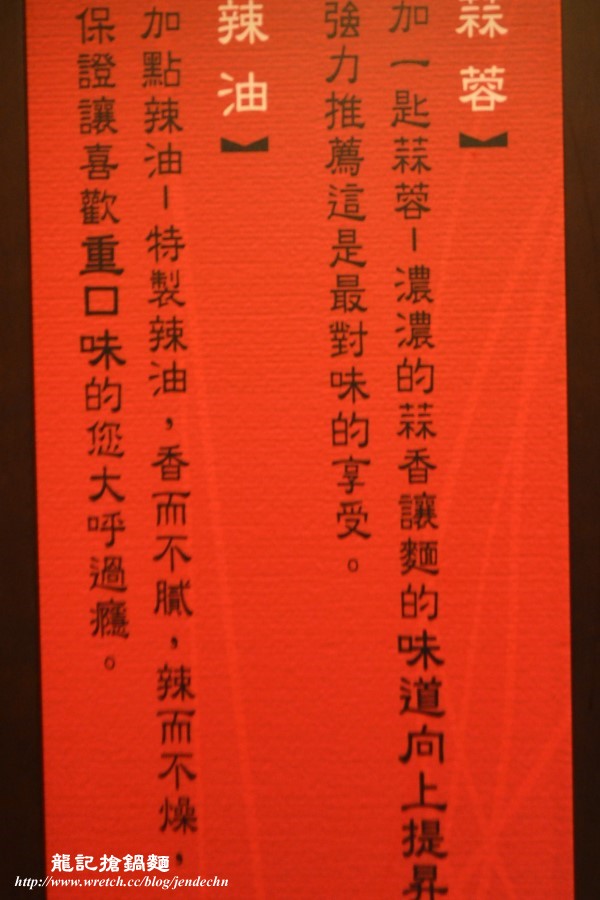 蒜蓉】
加一匙蒜蓉－濃濃的蒜香讓麵的味道向上提昇
強力推薦這是最對味的享受。
辣油】
加點辣油－特製辣油，香而不膩，辣而不燥，
保證讓喜歡重口味的您大呼過癮。
龍記搶鍋麵
http://www.wretch.cc/blog/jendechn